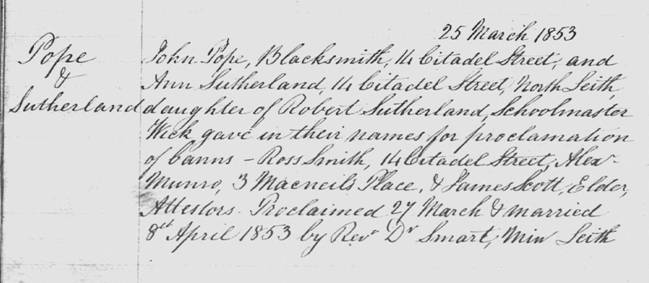 25 March 1853
Pope
&
Sutherland
John Pope, Blacksmith, 14 Citadel Street, and
Ann Sutherland, 14 Citadel Street, North Leith
daughter of Robert Sutherland, Schoolmaster
Wick gave in their names for proclamation
of banns – Ross Smith, 14 Citadel Street, Alexr
Munro, 3 Macneils Place, & James Scott, Elder,
Attestors. Proclaimed 27 March & married
8th April 1853 by Revr Dr Smart, Minr Leith